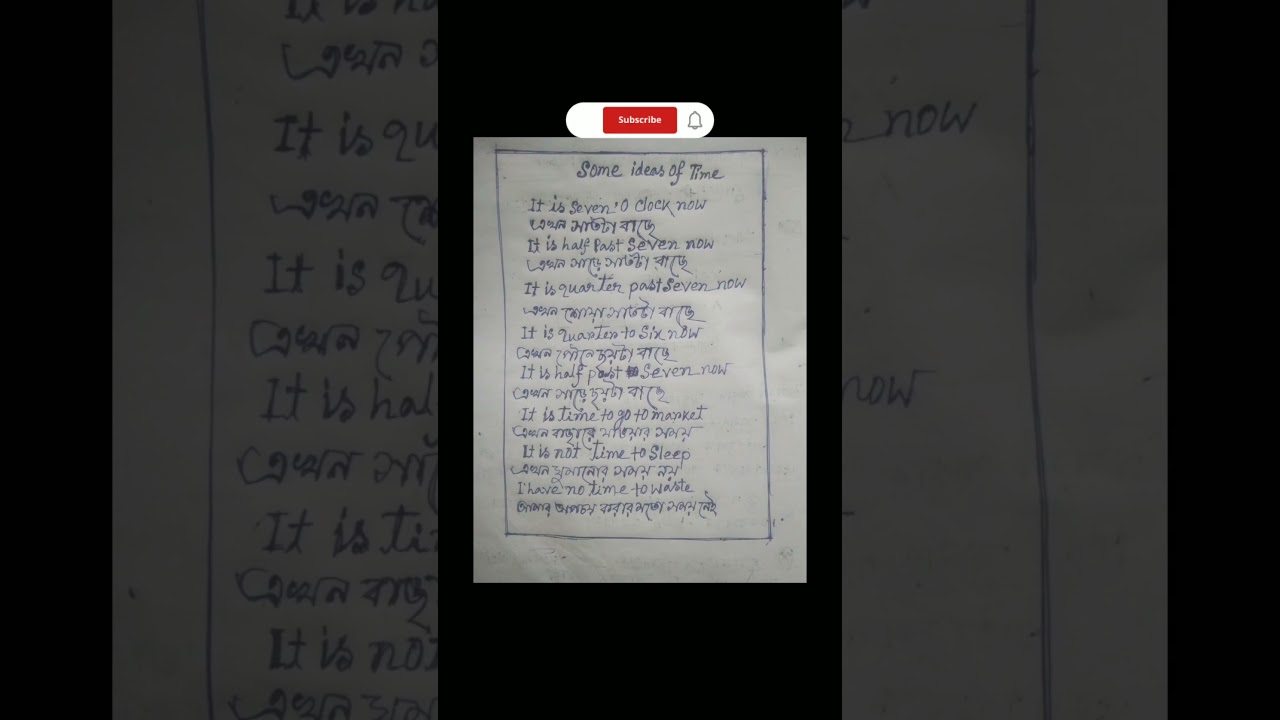 Subscribe
Some ideas of Time
It is Seven'O Clock now
এখন সাতটা বাজে
It is half Past Seven now
এখন সাড়ে সাতটা বাজে
It is quarter past Seven now
এখন সোয়া সাতটা বাজে
It is quarter to Six now
এখন পৌনে ছয়টা বাজে
It is half past Seven now
এখন সাড়ে ছয়টা বাজে
It is time to go to market
এখন বাজারে যাওয়ার সময়
It is not time to Sleep
এখন ঘুমানোর সময় নয়
I have no time to waste
আমার অপচয় করার মতো সময় নেই